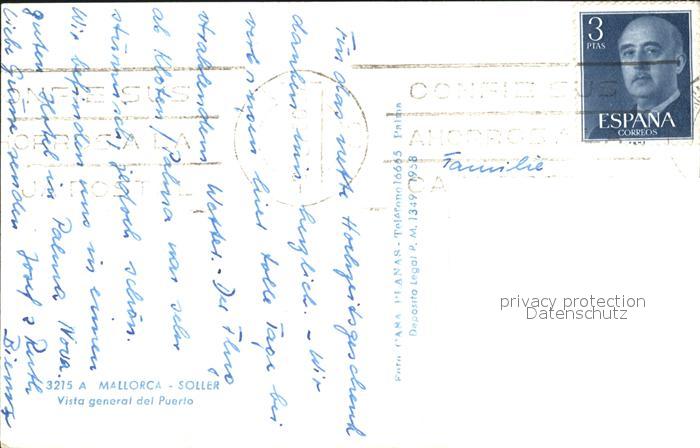 Für das nette Hochzeitsgeschenk
danken wir herzlich. - Wir
verbringen hier tolle Tage bei
strahlendem Wetter. - Der Flug
ab Kloten / Palma war sehr
stürmisch, jedoch schön.
Wir befinden uns in einem
guten Hotel in Palma Nova.
Liebe Grüsse senden Josef & Ruth
3215 A MALLORCA - SOLLER
Vista general del Puerto
Foto CASA PLANAS - Teléfono 16665 Palma
Deposito Legal P. M. 1349-1958
3
PTAS
ESPAÑA
CORREOS
CONFIE SUS
AHORROS A LA
CA
Familie
privacy protection
Datenschutz